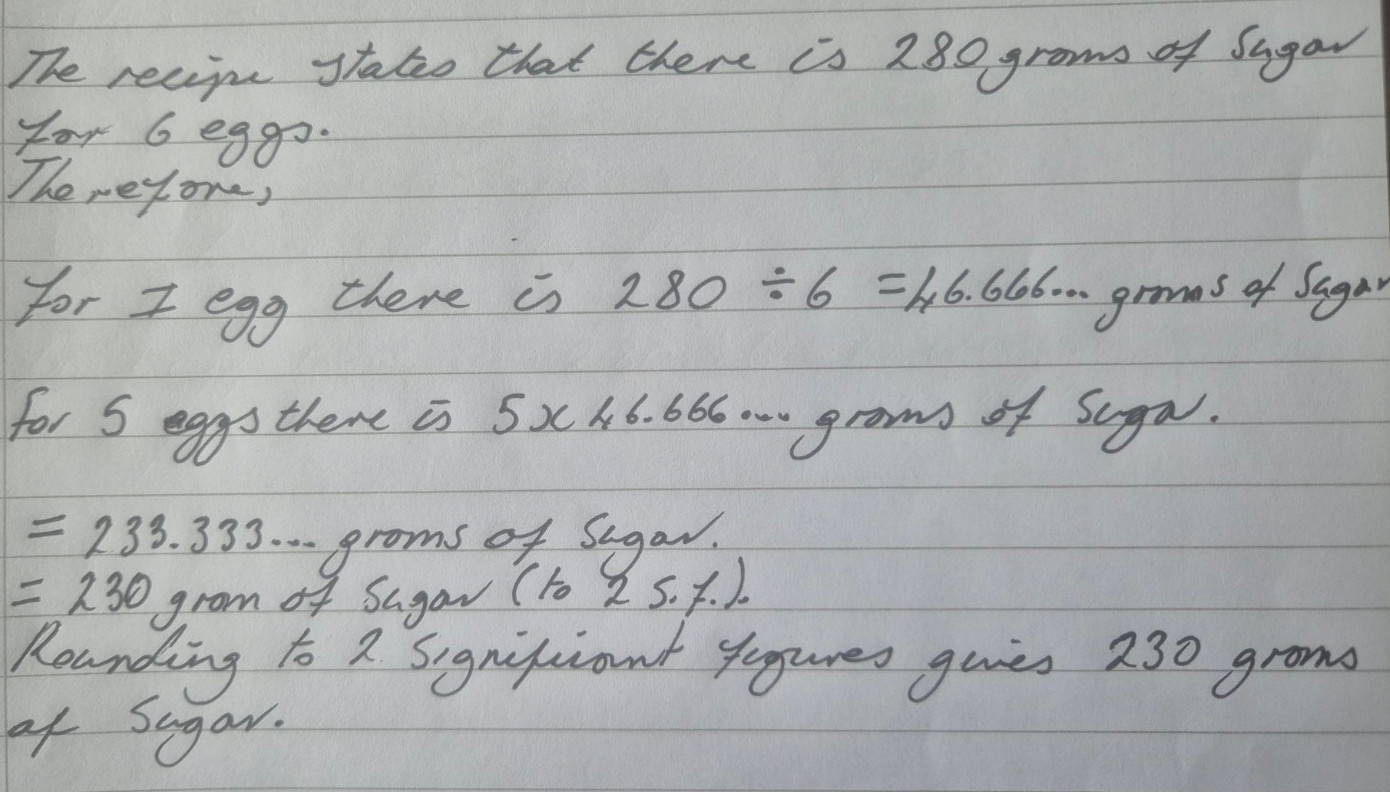 The recipe states that there is 280 grams of Sugar
for 6 eggs.
Therefore,
for 1 egg there is 280 ÷ 6 = 46.666... grams of Sugar
for 5 eggs there is 5 x 46.666... grams of Sugar.
= 233.333... grams of Sugar.
= 230 gram of Sugar (to 2 s.f.).
Rounding to 2 Significant figures gives 230 grams
of Sugar.